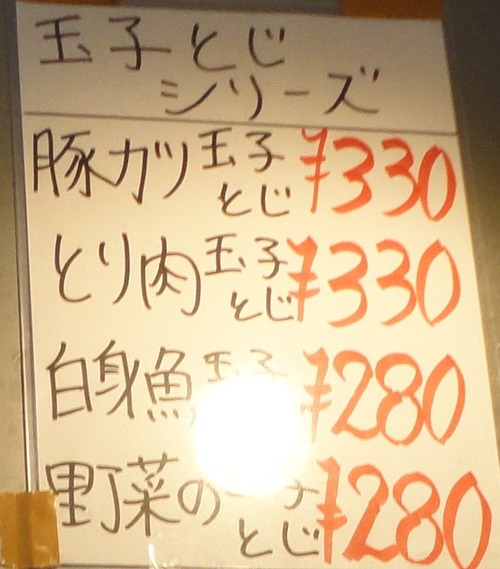 玉子とじ
シリーズ
豚カツ玉子とじ ¥330
とり肉玉子とじ ¥330
白身魚玉子 ¥280
野菜の 子とじ ¥280